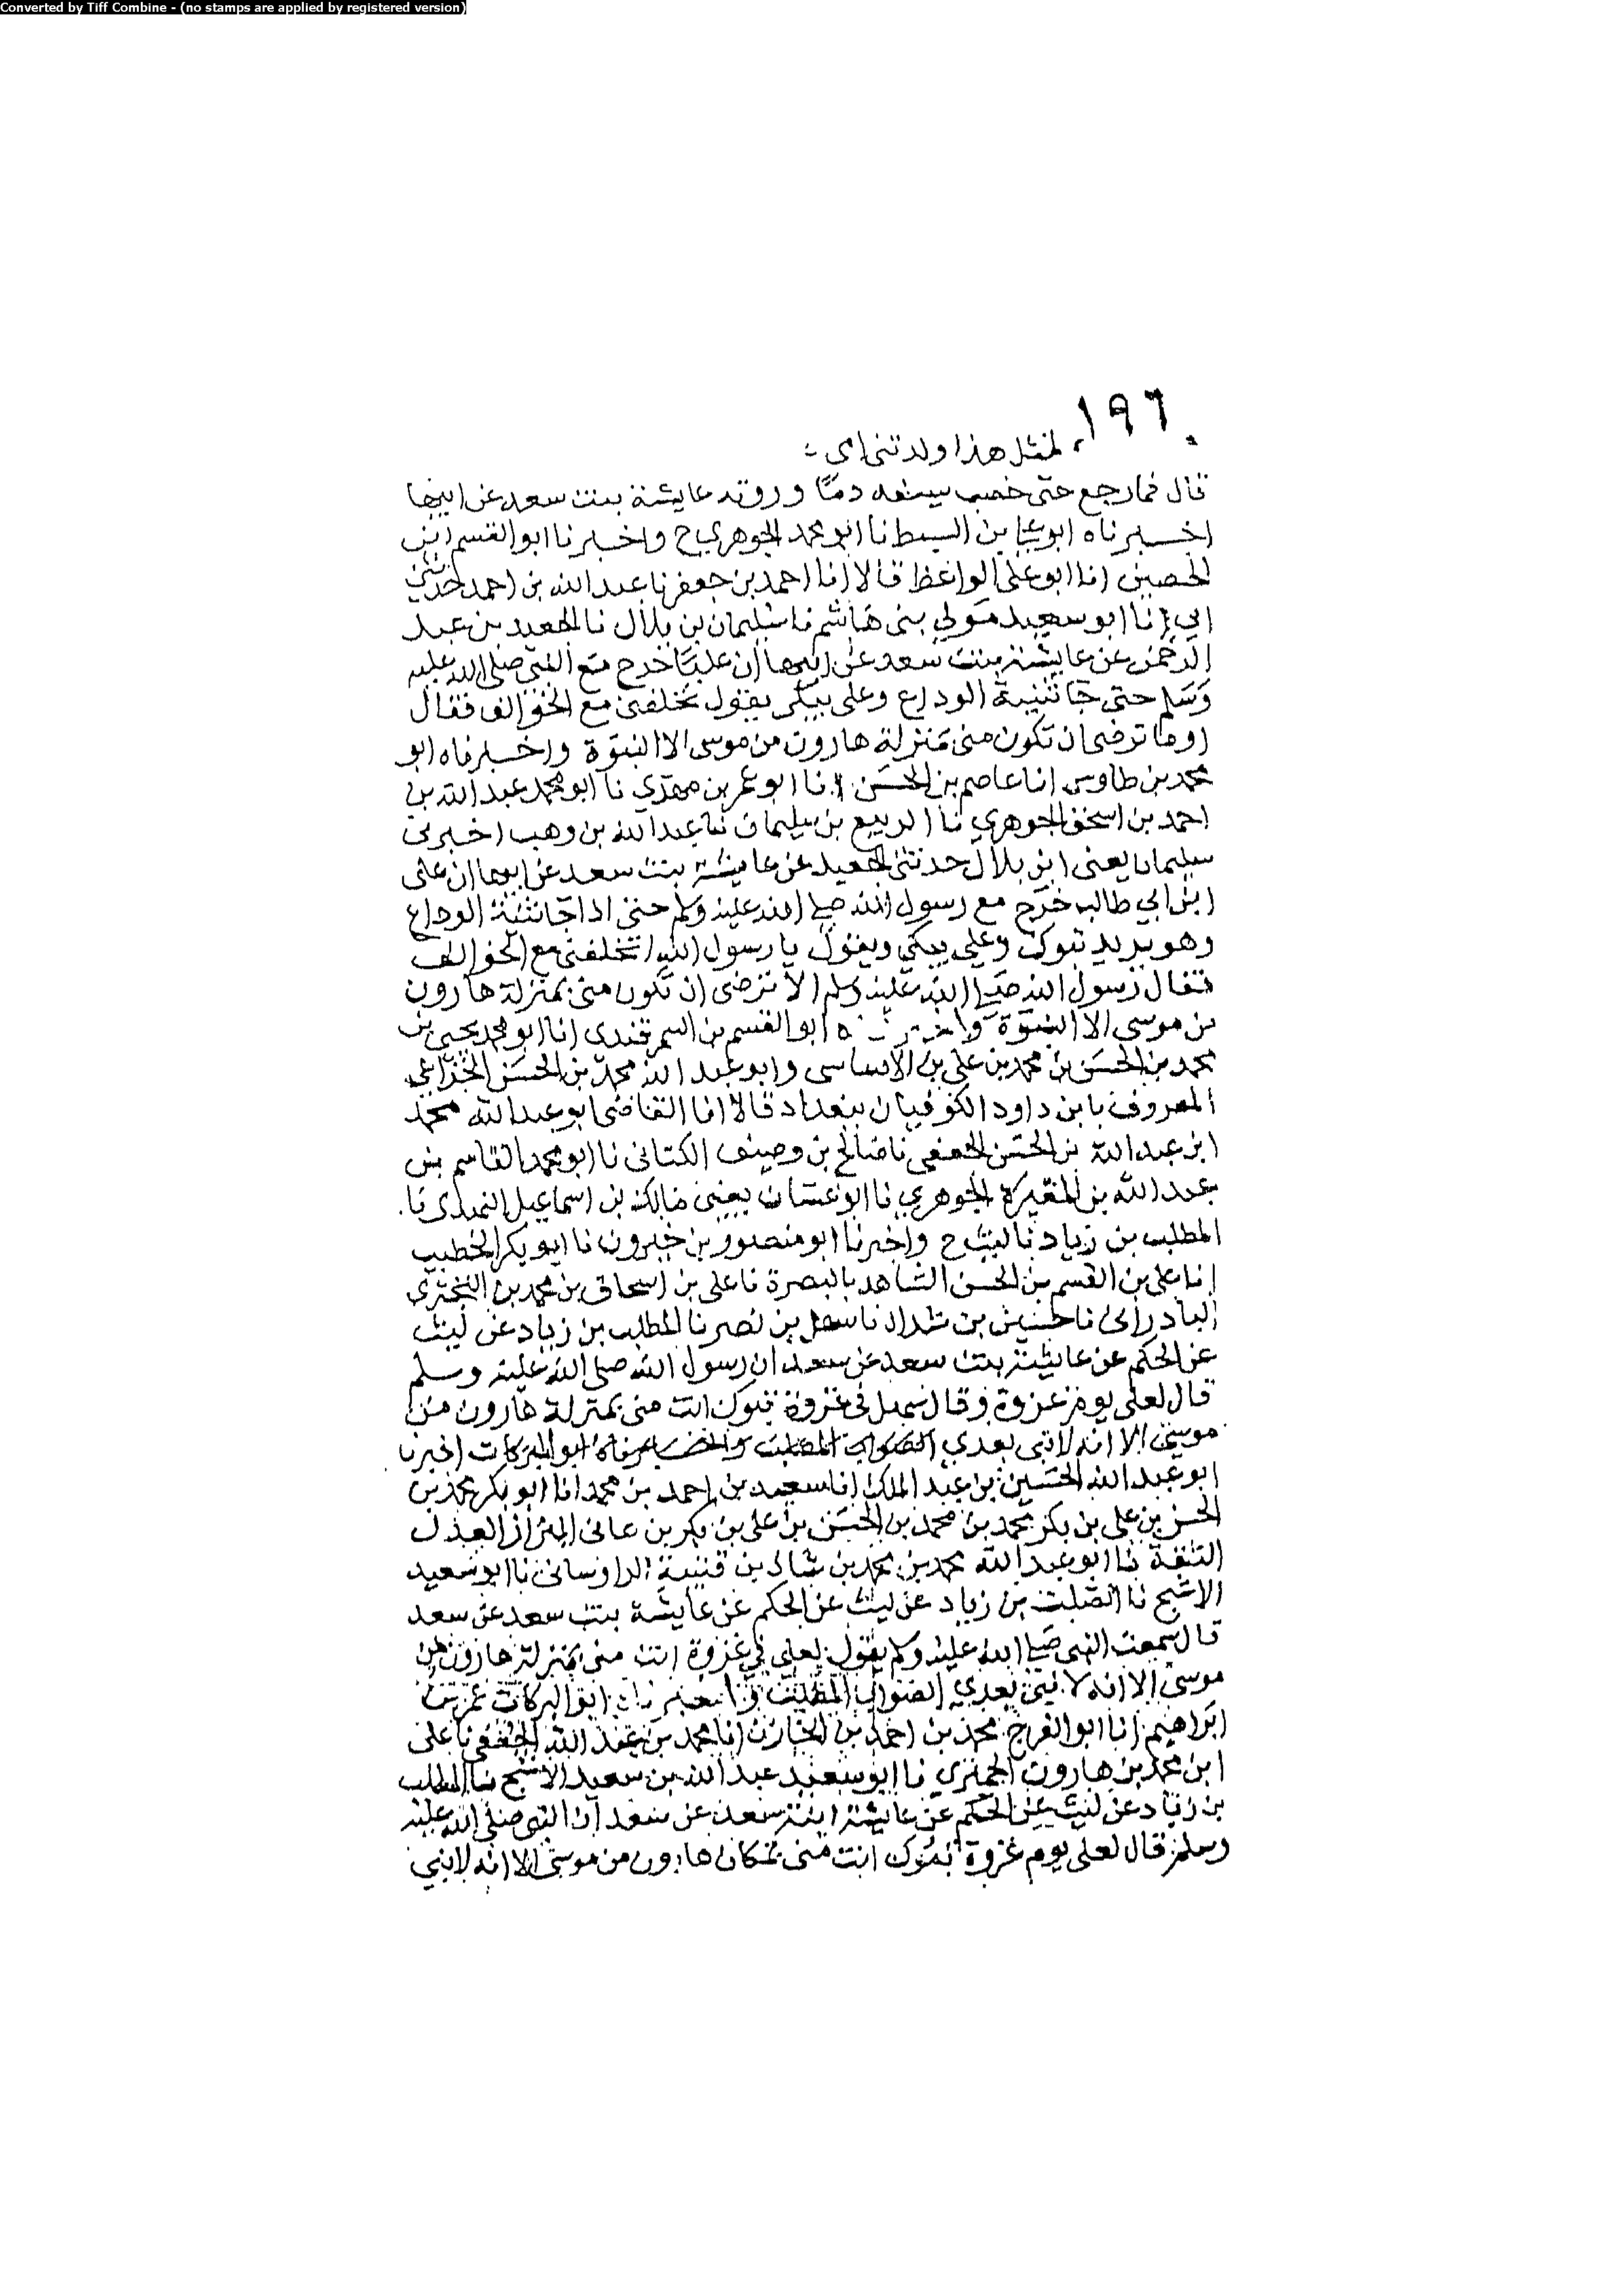 Converted by Tiff Combine - (no stamps are applied by registered version)
١٩٦
لمثل هذا ولدتني امي
قال فما رجع حتى خضب سيفه دما وروته عايشة بنت سعد عن ابيها
اخبرناه ابو علي بن السبط نا ابو محمد الجوهري ح واخبرنا ابو القسم ابن
الحصين انا ابو علي الواعظ قالا انا احمد بن جعفر نا عبد الله بن احمد حدثني
ابي نا ابو سعيد مولى بني هاشم نا سليمان بن بلال نا الجعيد بن عبد
الرحمن عن عايشة بنت سعد عن ابيها ان عليا خرج مع النبي صلى الله عليه
وسلم حتى جا ثنية الوداع وعلي يبكي يقول تخلفني مع الخوالف فقال
اوما ترضى ان تكون مني بمنزلة هارون من موسى الا النبوة واخبرناه ابو
محمد بن طاوس انا عاصم بن الحسن انا ابو عمر بن مهدي نا ابو محمد عبد الله بن
احمد بن اسحق الجوهري نا الربيع بن سليمان نا عبد الله بن وهب اخبرني
سليمان يعني ابن بلال حدثني الجعيد عن عايشة بنت سعد عن ابيها ان علي
ابن ابي طالب خرج مع رسول الله صلى الله عليه وسلم حتى اذا جا ثنية الوداع
وهو يريد تبوك وعلي يبكي ويقول يا رسول الله تخلفني مع الخوالف
فقال رسول الله صلى الله عليه وسلم الا ترضى ان تكون مني بمنزلة هارون
من موسى الا النبوة واخبرناه ابو القسم بن السمرقندي انا ابو محمد يحيى بن
محمد بن الحسن بن محمد بن علي بن الاقساسي وابو عبد الله محمد بن الحسن الخزاعي
المعروف بابن داود الكوفيان ببغداد قالا انا القاضي ابو عبد الله محمد
ابن عبد الله بن الحسن الجعفي نا صالح بن وصيف الكتاني نا ابو محمد القاسم بن
عبد الله بن المغيرة الجوهري نا ابو غسان يعني مالك بن اسماعيل النهدي نا
المطلب بن زياد نا ليث ح واخبرنا ابو منصور بن خيرون نا ابو بكر الخطيب
انا علي بن القسم بن الحسن الشاهد بالبصرة نا علي بن اسحاق بن محمد بن البختري
البادرائي نا حنيش بن شداد نا سهل بن نصر نا المطلب بن زياد عن ليث
عن الحكم عن عايشة بنت سعد عن سعد ان رسول الله صلى الله عليه وسلم
قال لعلي يوم غزوة وقال سهل في غزوة تبوك انت مني بمنزلة هارون من
موسى الا انه لا نبي بعدي الصواب المطلب واخبرناه ابو البركات اخبرنا
ابو عبد الله الحسين بن عبد الملك انا سعيد بن احمد بن محمد انا ابو بكر محمد بن
الحسن بن علي بن بكر محمد بن محمد بن الحسن بن علي بن بكر بن هاني البزاز العدل
الثقة نا ابو عبد الله محمد بن محمد بن شاذ بن قتيبة الراوساني نا ابو سعيد
الاشج نا الصلت بن زياد عن ليث عن الحكم عن عايشة بنت سعد عن سعد
قال سمعت النبي صلى الله عليه وسلم يقول لعلي في غزوة انت مني بمنزلة هارون من
موسى الا انه لا نبي بعدي الصواب المطلب واخبرناه ابو البركات عمر بن
ابراهيم انا ابو الفرج محمد بن احمد بن الخازن انا محمد بن عبد الله الجعفي نا علي
ابن محمد بن هارون الحميري نا ابو سعيد عبد الله بن سعيد الاشج نا المطلب
بن زياد عن ليث عن الحكم عن عايشة ابنة سعد عن سعد ان النبي صلى الله عليه
وسلم قال لعلي يوم غزوة تبوك انت مني بمكان هارون من موسى الا انه لا نبي